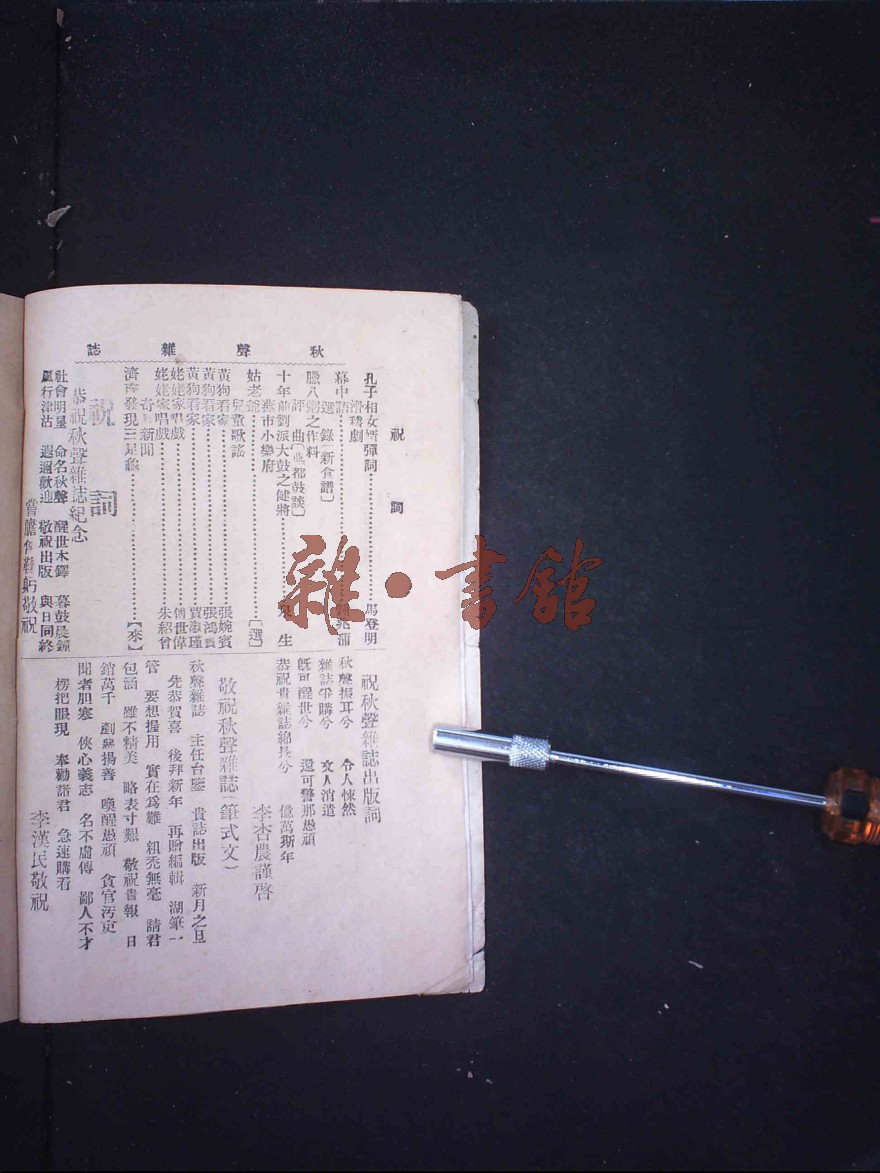 秋聲雜誌
祝詞
孔子相女新彈詞……馬登明
滑稽劇
幕中語……兆蒲
選錄〔新食譜〕
臘八粥之作料
評曲〔燕都鼓談〕
十年前劉派大鼓之健將……生
燕市小樂府
姑老爺……〔選〕
兒童歌謠
黃狗看家……張婉賓
黃狗看家……張鴻賓
黃狗看家……賈淑瑾
姥姥家唱戲……傅世偉
姥姥家唱戲……朱紹曾
奇新聞
濟南發現三足……【來】
祝詞
恭祝秋聲雜誌紀念
社會明星 命名秋聲 醒世木鐸 暮鼓晨鐘
風行津沽 遐邇歡迎 敬祝出版 與日同終
嘗膽敬祝
祝秋聲雜誌出版詞
秋聲振耳兮 令人悚然
雜誌爭購兮 文人消遣
既可醒世兮 還可警那愚頑
恭祝貴雜誌綿長兮 億萬斯年
李杏農謹啓
敬祝秋聲雜誌(筆式文)
秋聲雜誌 主任台鑒 貴誌出版 新月之旦
先恭賀喜 後拜新年 再贈編輯 湖筆一
管 要想握用 實在爲難 粗禿無毫 請君
包涵 雖不精美 略表寸艱 敬祝貴報 日
銷萬千 劍惡揚善 喚醒愚頑 貪官汚吏
聞者胆寒 俠心義志 名不虛傳 鄙人不才
楞把眼現 奉勸諸君 急速購看
李漢民敬祝
雜·書館